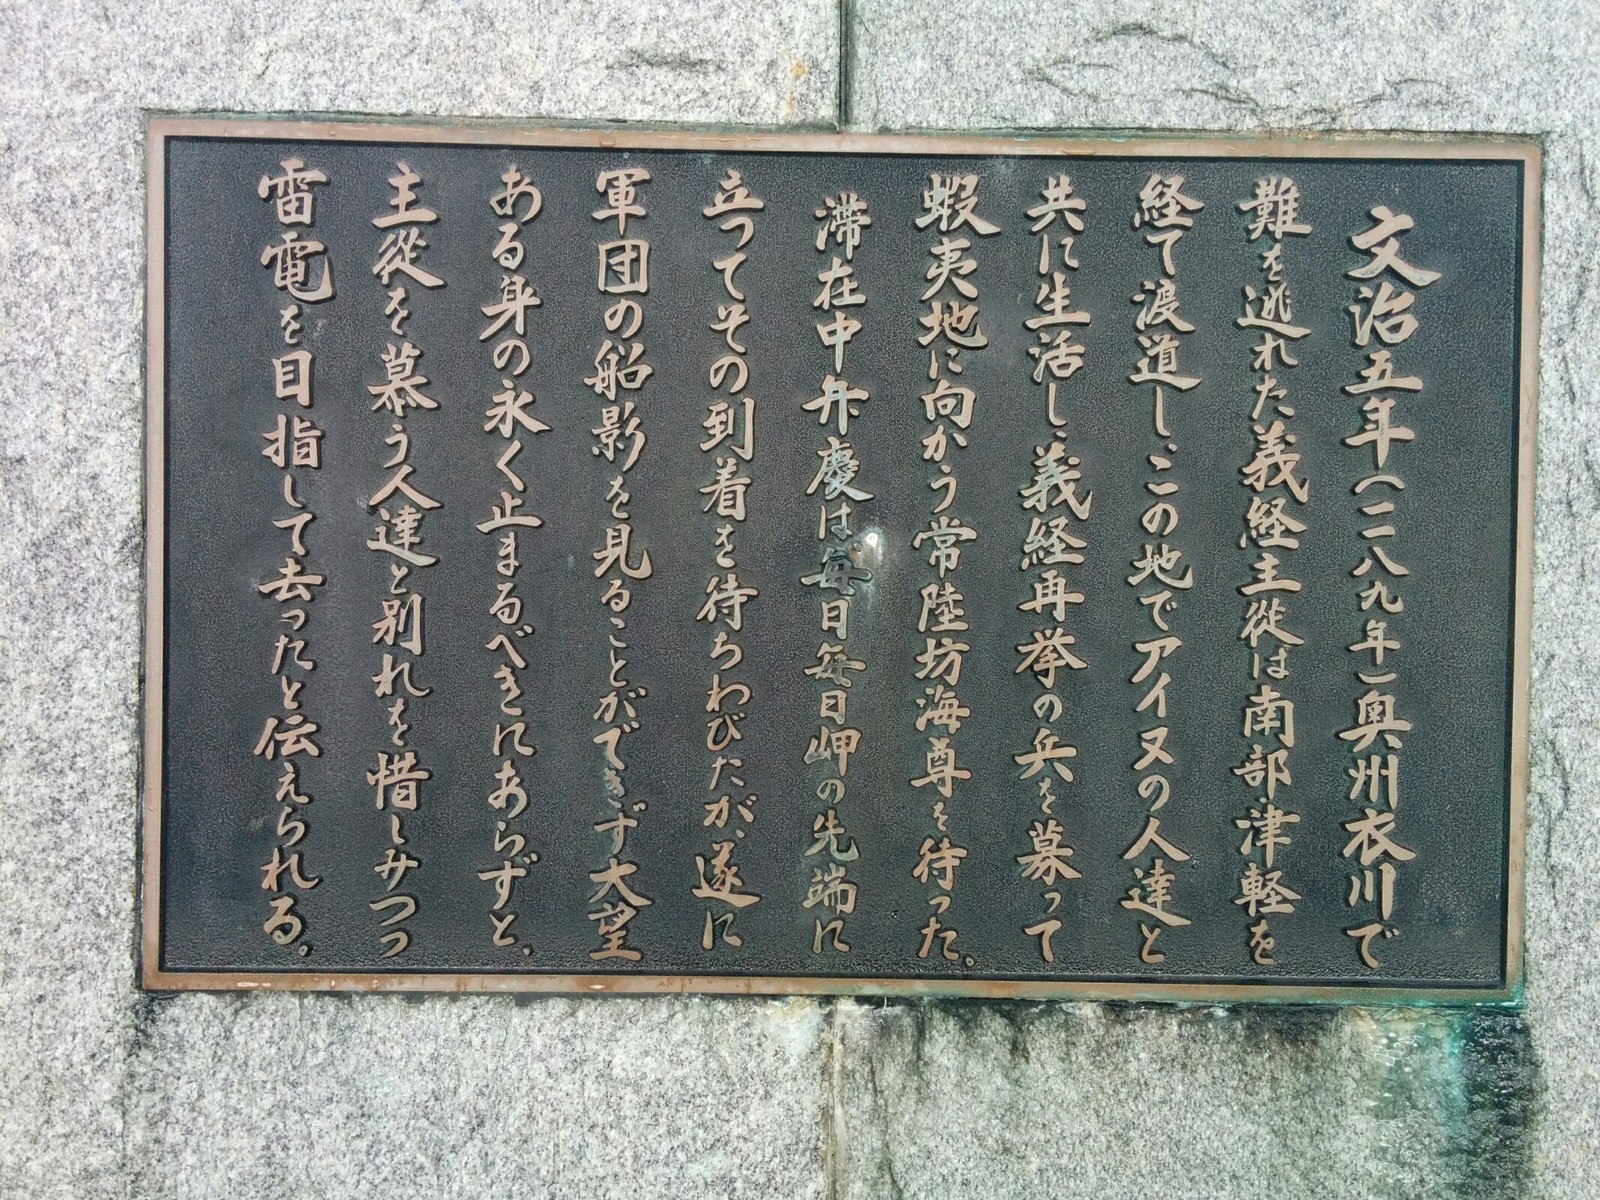 文治五年（一一八九年）奥州衣川で
難を逃れた義経主従は南部、津軽を
経て渡道し、この地でアイヌの人達と
共に生活し、義経再挙の兵を募って
蝦夷地に向かう常陸坊海尊を待った。
滞在中弁慶は毎日毎日岬の先端に
立ってその到着を待ちわびたが、遂に
軍団の船影を見ることができず大望
ある身の永く止まるべきにあらずと、
主従を慕う人達と別れを惜しみつつ
雷電を目指して去ったと伝えられる。